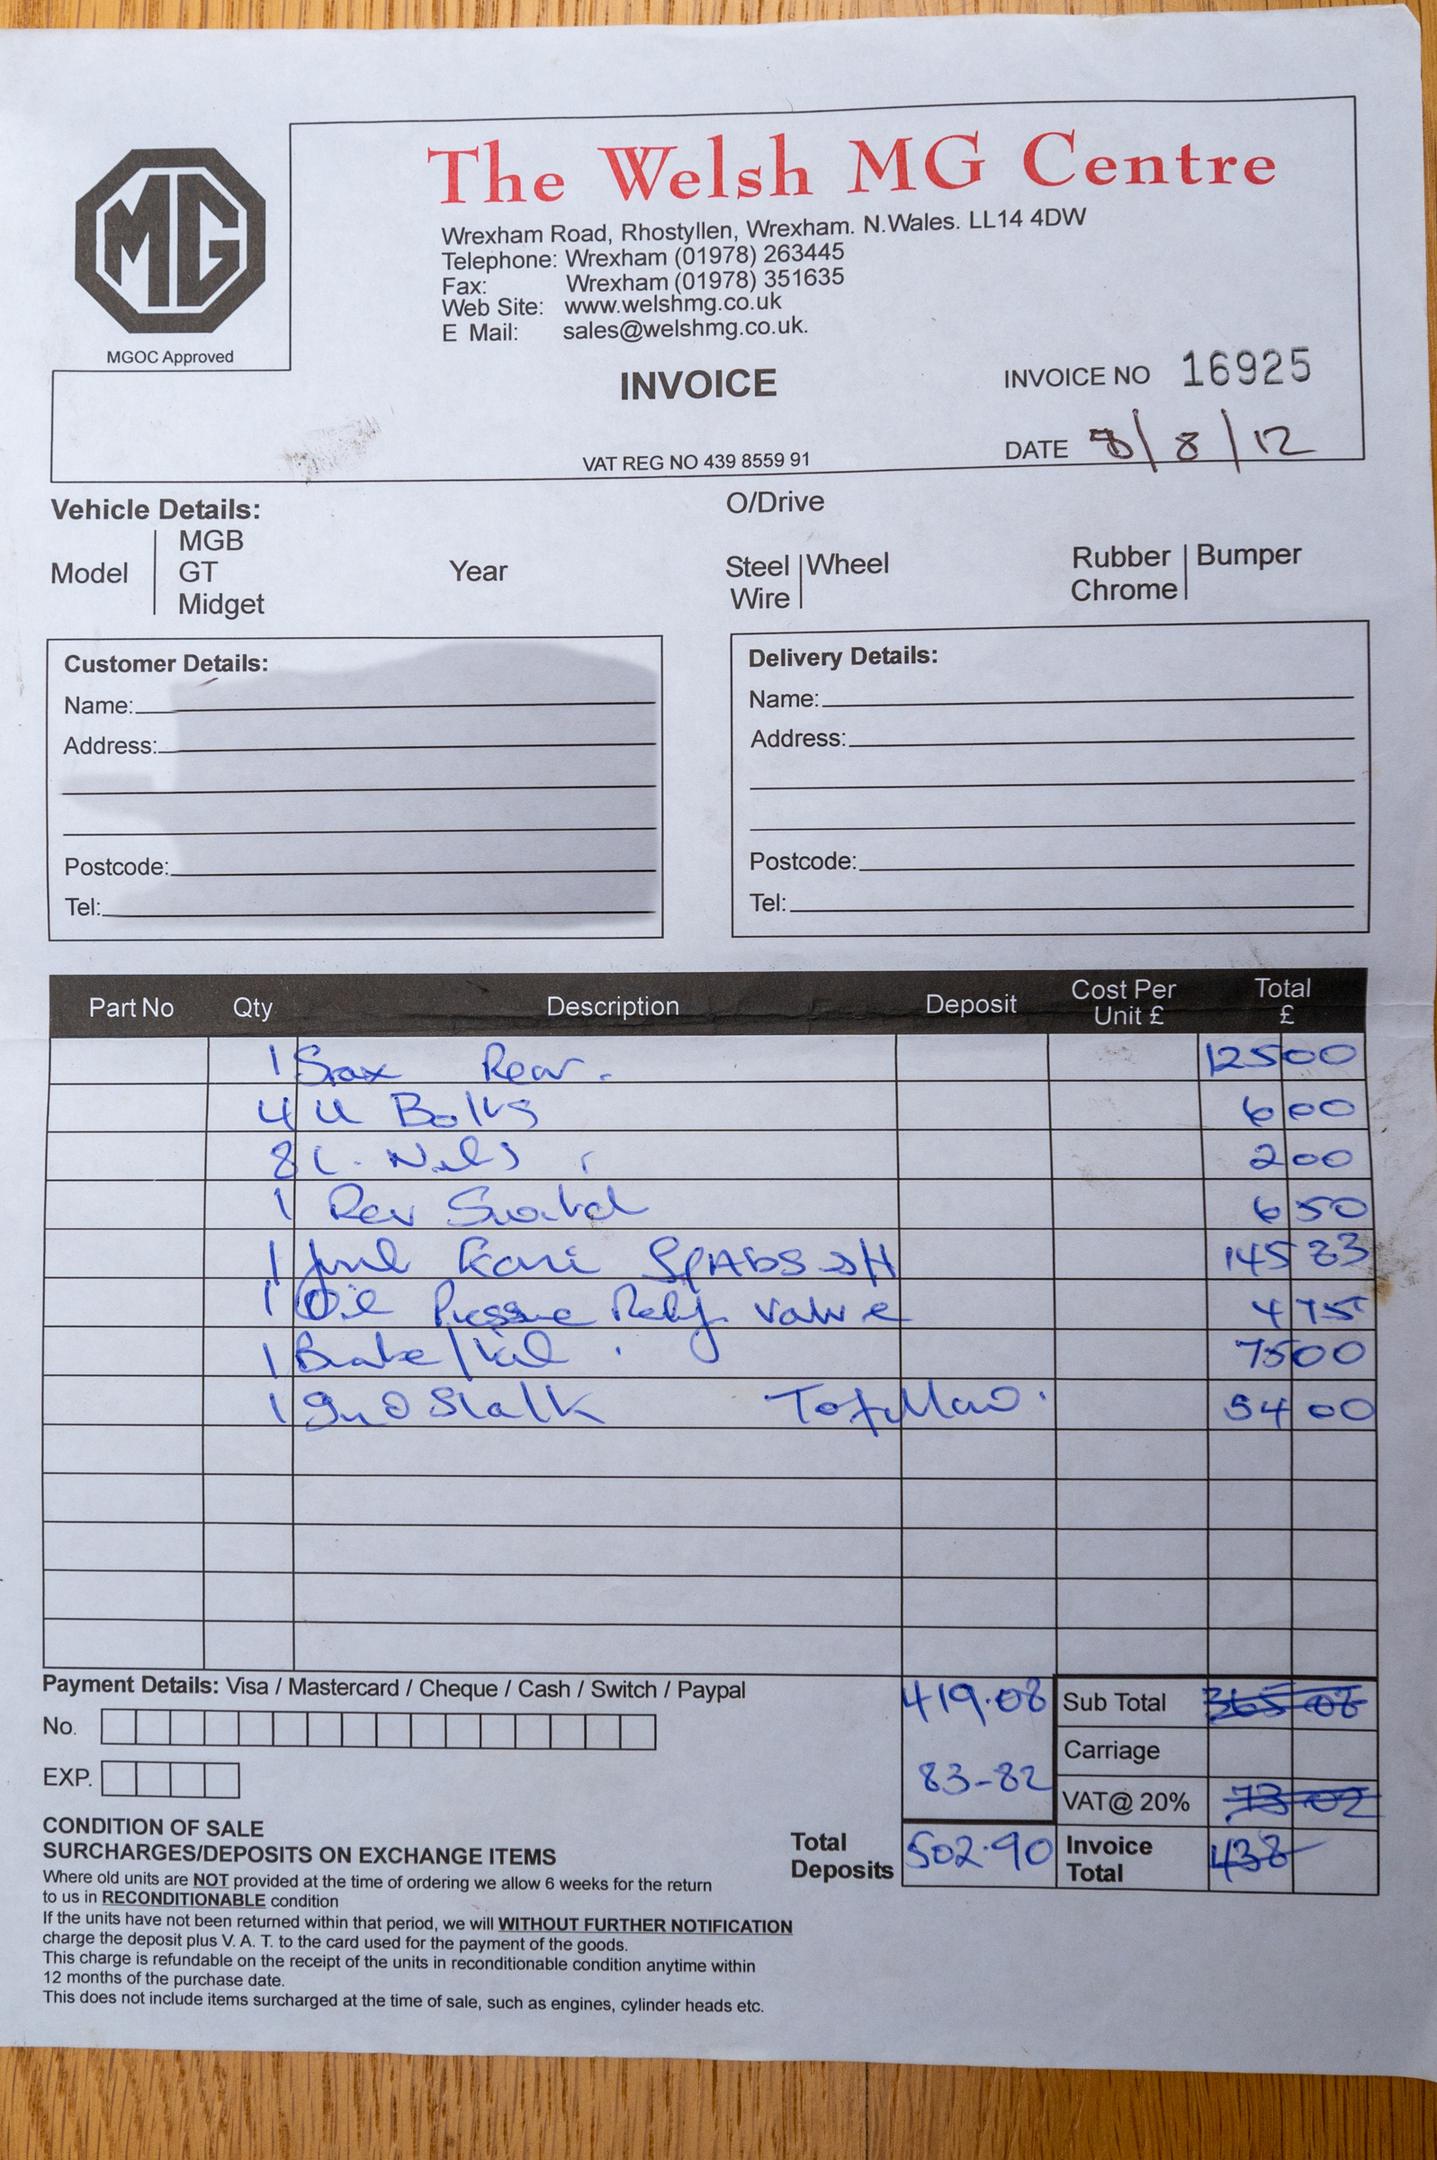 The Welsh MG Centre
Wrexham Road, Rhostyllen, Wrexham. N.Wales. LL14 4DW
Telephone: Wrexham (01978) 263445
Fax: Wrexham (01978) 351635
Web Site: www.welshmg.co.uk
E Mail: sales@welshmg.co.uk.
MG
MGOC Approved
INVOICE
INVOICE NO 16925
VAT REG NO 439 8559 91
DATE 8/8/12
Vehicle Details:
O/Drive
Model MGB
GT
Midget
Year
Steel Wheel
Wire
Rubber Bumper
Chrome
Customer Details:
Name:
Address:
Postcode:
Tel:
Delivery Details:
Name:
Address:
Postcode:
Tel:
Part No Qty Description Deposit Cost Per Unit £ Total £
1 Rear 125 00
4 U Bolts 6 00
8 2 00
1 Rev Switch 6 50
1 145 83
1 Oil Pressure Valve 4 75
1 Brake 75 00
1 Stalk 54 00
Payment Details: Visa / Mastercard / Cheque / Cash / Switch / Paypal
No.
EXP.
419.08 Sub Total 365 08
Carriage
83-82 VAT@ 20% 73 02
Total Deposits 502.90 Invoice Total 438
CONDITION OF SALE
SURCHARGES/DEPOSITS ON EXCHANGE ITEMS
Where old units are NOT provided at the time of ordering we allow 6 weeks for the return
to us in RECONDITIONABLE condition
If the units have not been returned within that period, we will WITHOUT FURTHER NOTIFICATION
charge the deposit plus V. A. T. to the card used for the payment of the goods.
This charge is refundable on the receipt of the units in reconditionable condition anytime within
12 months of the purchase date.
This does not include items surcharged at the time of sale, such as engines, cylinder heads etc.